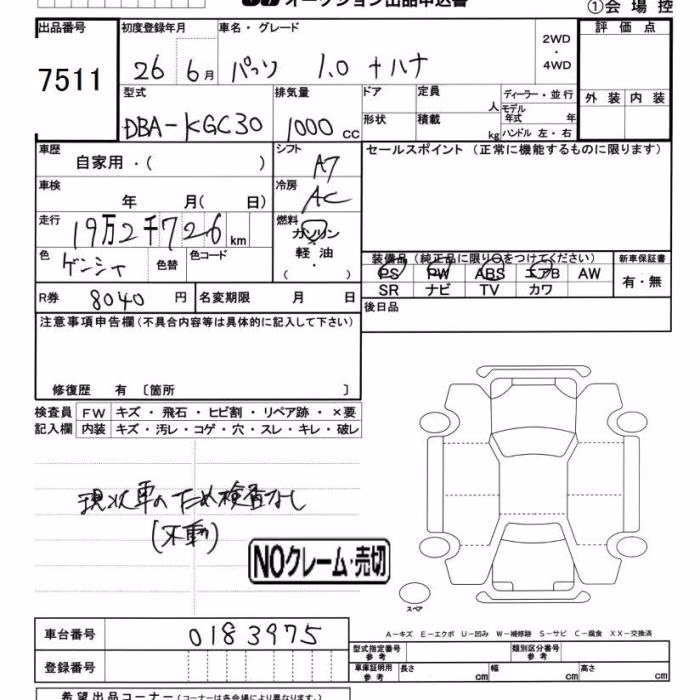 オークション出品申込書
①会場控
出品番号 初度登録年月 車名・グレード 2WD・4WD 評価点
7511 26年 6月 パッソ 1.0 +ハナ
型式 排気量 ドア 定員 人 ディーラー・並行 外装 内装
DBA-KGC30 1000cc 形状 積載 kg モデル年式 年 ハンドル 左・右
車歴 自家用・( ) シフト A7 セールスポイント (正常に機能するものに限ります)
車検 年 月( 日) 冷房 AC
走行 19万2千726km 燃料 ガソリン 軽油 ( ・ )
色 ゲンシャ 色替 色コード 装備品(純正品に限り○をつけてください) 新車保証書
PS PW ABS エアB AW 有・無
R券 8040円 名変期限 月 日 SR ナビ TV カワ
注意事項申告欄(不具合内容等は具体的に記入して下さい) 後日品
修復歴 有 〔箇所 〕
検査員 FW キズ・飛石・ヒビ割・リペア跡・×要
記入欄 内装 キズ・汚レ・コゲ・穴・スレ・キレ・破レ
現状車のため検査なし
(不動)
NOクレーム・売切
スペア
A-キズ E-エクボ U-凹み W-補修跡 S-サビ C-腐食 XX-交換済
車台番号 0183975 型式指定番号 参考 類別区分番号 参考
登録番号 車庫証明用 参考 長さ cm 幅 cm 高さ cm
希望出品コーナー(コーナーは各会場により異なります)